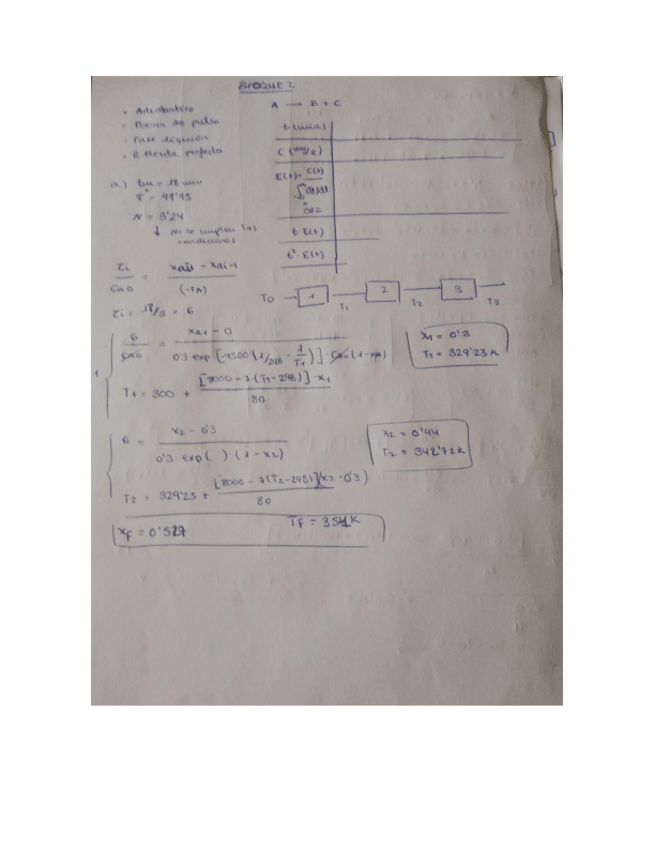 BLOQUE 2
A → B + C
• Adiabático
• Forma de pulso
• Fase líquida
• R. Mezcla perfecta
t (min)
C (mg/l)
E(t) = C(t) / ∫₀^∞ C(t)dt
t·E(t)
t²·E(t)
a.) tm = 18 min
σ² = 99'95
N = 3'24
↓ No se cumplen las condiciones
τi / CA0 = (xAi - xAi-1) / (-rA)
T0 → 1 → T1 → 2 → T2 → 3 → T3
τi = 18/3 = 6
6 / CA0 = (xA1 - 0) / (0'3 exp[-4500(1/298 - 1/T1)]·CA0(1-xA))
T1 = 300 + [8000 - 7·(T1-298)]·x1 / 80
x1 = 0'3
T1 = 329'23 K
6 = (x2 - 0'3) / (0'3·exp( )·(1-x2))
T2 = 329'23 + [8000 - 7(T2-298)](x2-0'3) / 80
x2 = 0'44
T2 = 342'72 K
xf = 0'527 Tf = 351 K